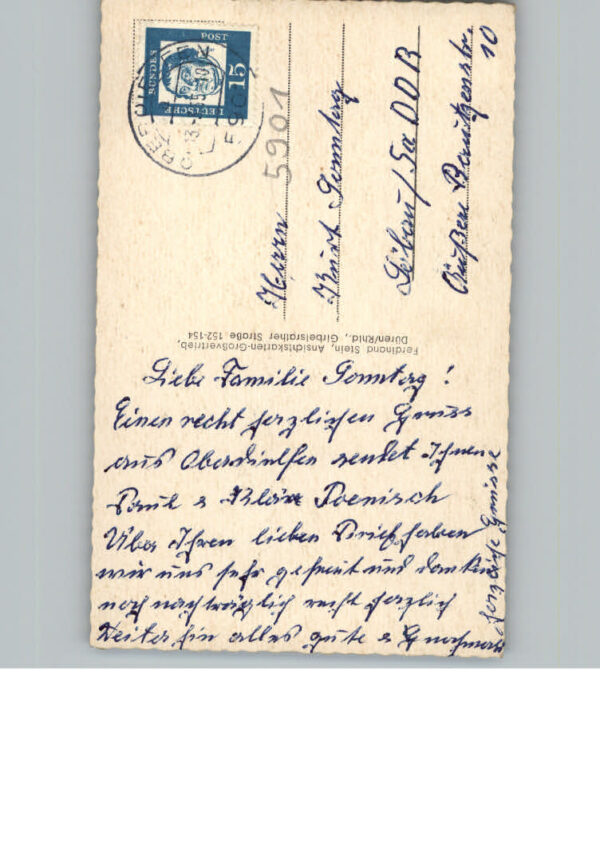 Liebe Familie Sonntag!
Einen recht herzlichen Gruss
aus Oberdielfen sendet Ihnen
Paul & Klara Poenisch
Über Ihren lieben Brief haben
wir uns sehr gefreut und danken
noch nachträglich recht herzlich
Weiterhin alles gute & nochmals
herzliche Grüsse
Herrn
Kurt Sonntag
Löbau/Sa DDR
Äußere Bautzenstr.
10
5901
Ferdinand Stein, Ansichtskarten-Großvertrieb,
Düren/Rhld., Girbelsrather Straße 152-154
DEUTSCHE
BUNDES
POST
15
5901